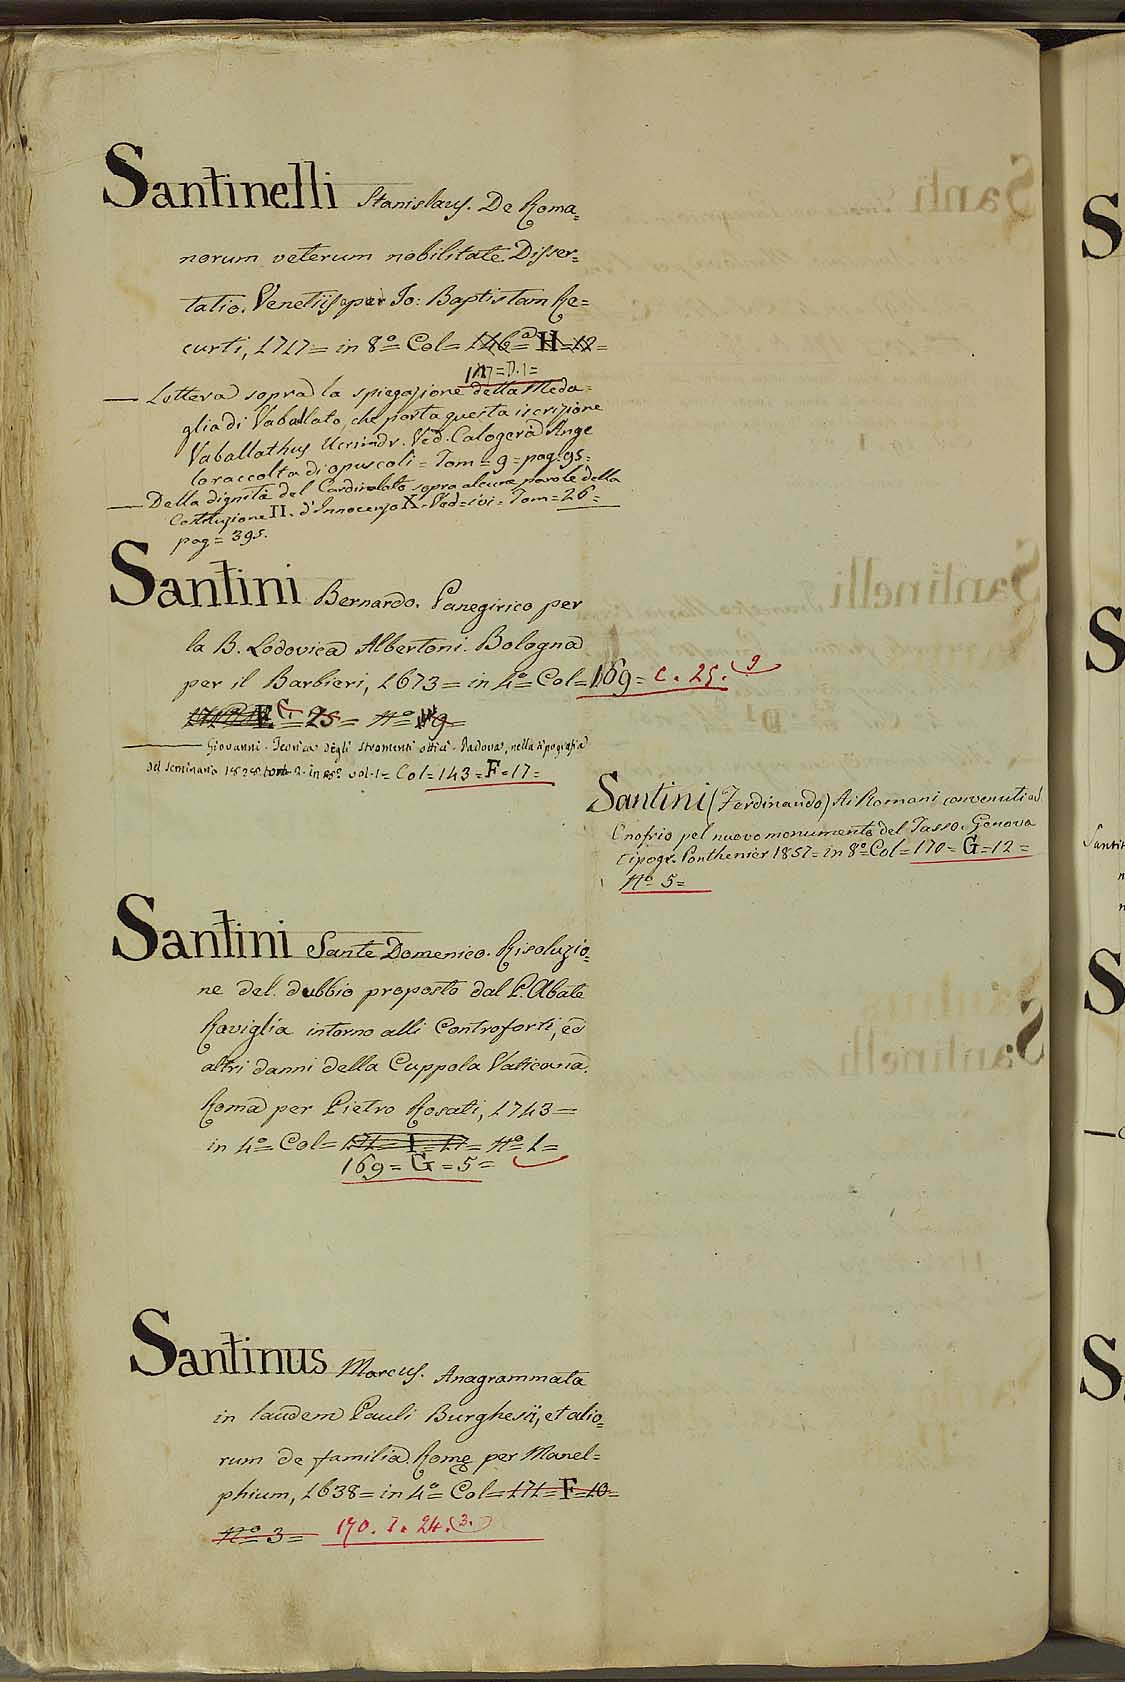 Santinelli Stanislaus. De Roma=
norum veterum nobilitate Disser=
tatio. Venetiis per Jo: Baptistam Re=
curti, 1717= in 8º= Col= 146= H=12=
117= D.1=
— Lettera sopra la spiegazione della Meda=
glia di Vaballato, che porta questa iscrizione
Vaballathus Ucrimdr. Ved. Calogerà Ange
lo raccolta di opuscoli= Tom= 9= pag: 95=
— Della dignità del Cardinalato sopra alcune parole della
Costituzione II. d'Innocenzo X. Ved= ivi= Tom= 26=
pag= 395.
Santini Bernardo. Panegirico per
la B. Lodovica Albertoni. Bologna
per il Barbieri, 1673= in 4º= Col= 169= C. 25. 9
25= Nº 9=
— Giovanni. Teorica degli stromenti ottici. Padova, nella tipografia
del seminario 1828 tom 2. in 8º vol. 1= Col= 143= F=17=
Santini (Ferdinando) Ai Romani convenuti ad
Onofrio pel nuovo monumento del Tasso. Genova
tipogr. Ponthenier 1857= in 8º= Col= 170= G=12=
Nº 5=
Santini Sante Domenico. Risoluzio=
ne del dubbio proposto dal P. Abate
Raviglia intorno alli Controforti, ed
altri danni della Cuppola Vaticana.
Roma per Pietro Rosati, 1743=
in 4º= Col= 171= I= 17= Nº 1=
169= G=5=
Santinus Marcus. Anagrammata
in laudem Pauli Burghesii, et alio=
rum de familia. Romę per Manel=
phium, 1638= in 4º= Col= 171= F=10=
Nº 3= 170. I. 24. 3.
S
S
Santin
S
S